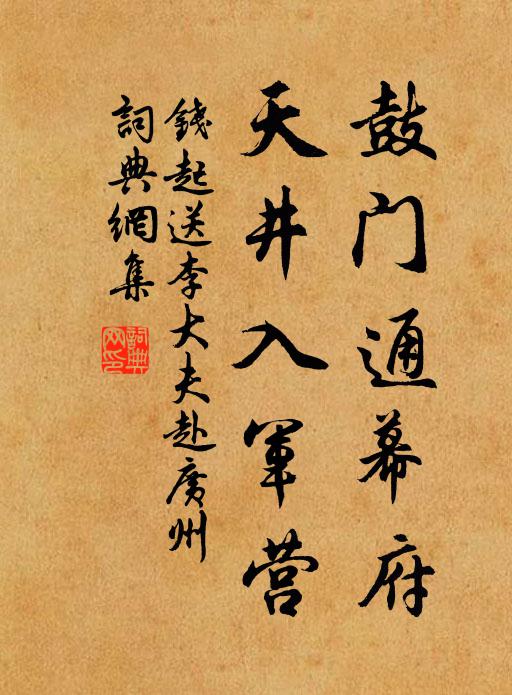 鼓门通幕府
天井入军营
錢起送李大夫赴廣州
詞典網集
詞典网印